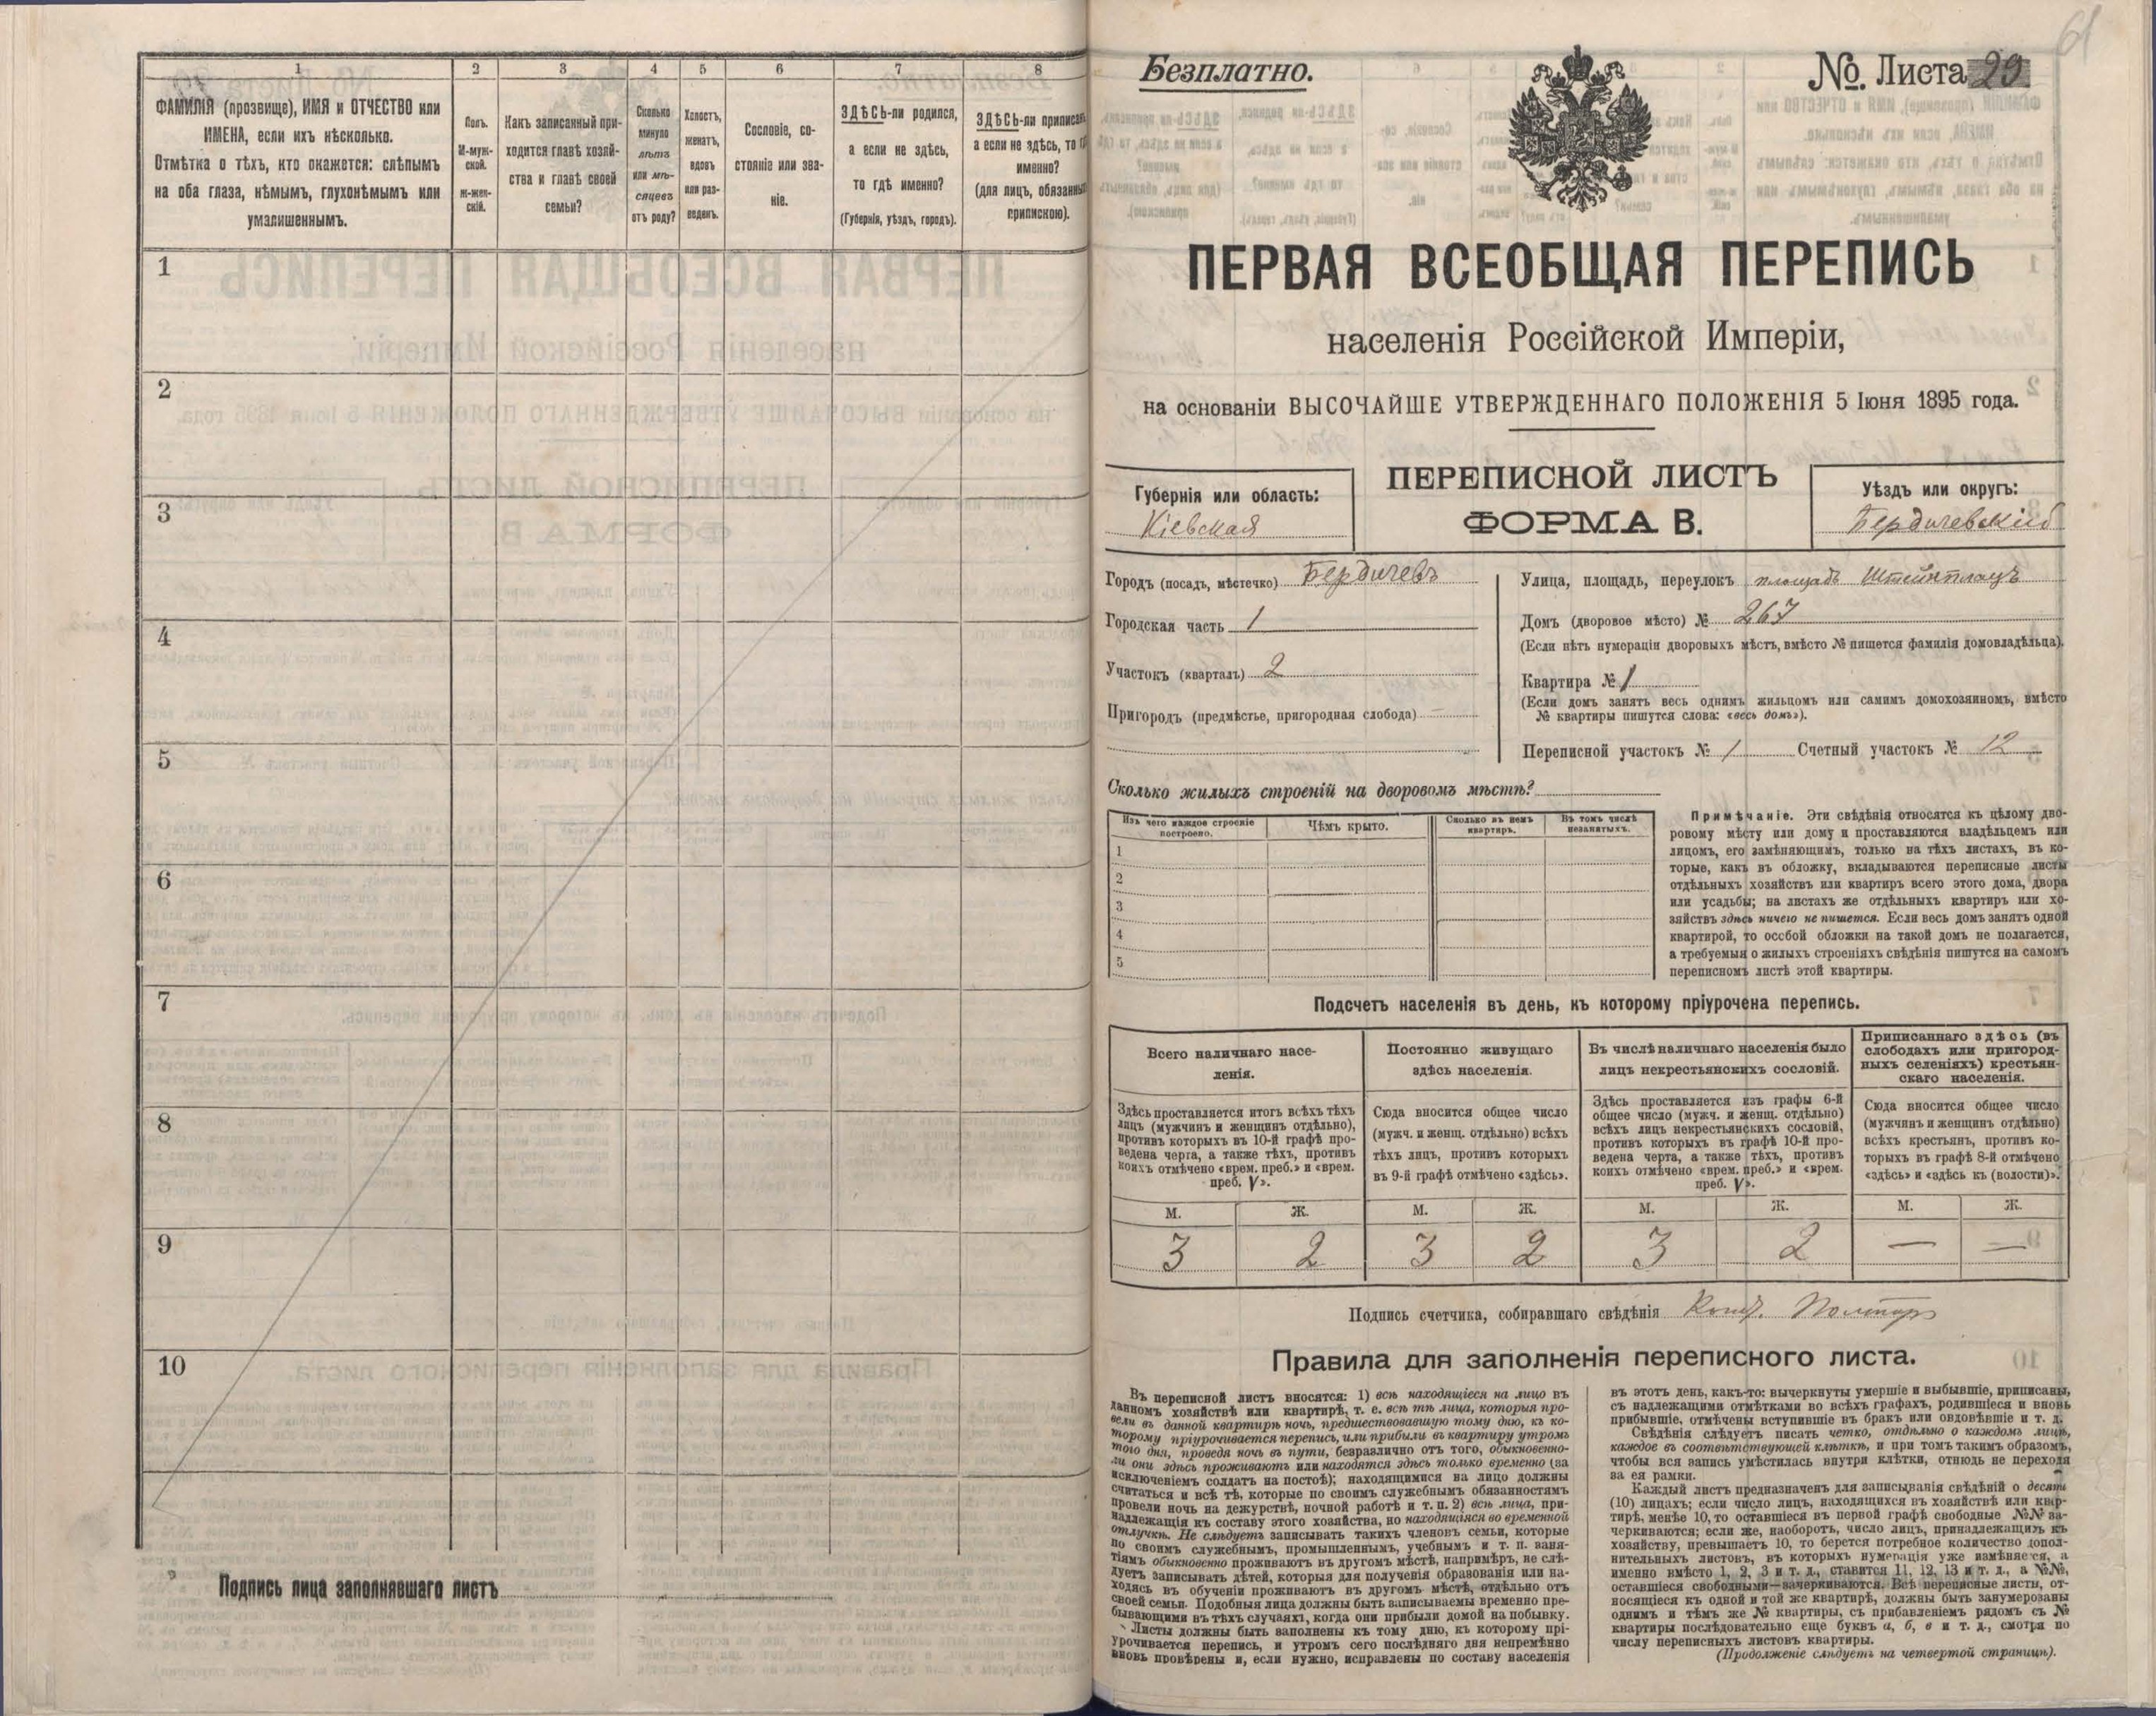 1 2 3 4 5 6 7 8
ФАМИЛІЯ (прозвище), ИМЯ и ОТЧЕСТВО или
ИМЕНА, если ихъ нѣсколько.
Отмѣтка о тѣхъ, кто окажется: слѣпымъ
на оба глаза, нѣмымъ, глухонѣмымъ или
умалишеннымъ.
Полъ.
М-муж-
ской.
Ж-жен-
скій.
Какъ записанный при-
ходится главѣ хозяй-
ства и главѣ своей
семьи?
Сколько
минуло
лѣтъ
или мѣ-
сяцевъ
отъ роду?
Холостъ,
женатъ,
вдовъ
или раз-
веденъ.
Сословіе, со-
стояніе или зва-
ніе.
ЗДѢСЬ-ли родился,
а если не здѣсь,
то гдѣ именно?
(Губернія, уѣздъ, городъ).
ЗДѢСЬ-ли приписанъ
а если не здѣсь, то
именно?
(для лицъ, обязанныхъ
припискою).
1
2
3
4
5
6
7
8
9
10
Подпись лица заполнявшаго листъ
61
Безплатно.
№ Листа 29
ПЕРВАЯ ВСЕОБЩАЯ ПЕРЕПИСЬ
населенія Россійской Имперіи,
на основаніи ВЫСОЧАЙШЕ УТВЕРЖДЕННАГО ПОЛОЖЕНІЯ 5 Іюня 1895 года.
Губернія или область:
Кіевская
ПЕРЕПИСНОЙ ЛИСТЪ
ФОРМА В.
Уѣздъ или округъ:
Бердичевскій
Городъ (посадъ, мѣстечко) Бердичевъ
Городская часть 1
Участокъ (кварталъ) 2
Пригородъ (предмѣстье, пригородная слобода) —
Улица, площадь, переулокъ площадь Штейнплацъ
Домъ (дворовое мѣсто) № 267
(Если нѣтъ нумераціи дворовыхъ мѣстъ, вмѣсто № пишется фамилія домовладѣльца).
Квартира № 1
(Если домъ занятъ весь однимъ жильцомъ или самимъ домохозяиномъ, вмѣсто
№ квартиры пишутся слова: «весь домъ»).
Переписной участокъ № 1 Счетный участокъ № 12
Сколько жилыхъ строеній на дворовомъ мѣстѣ?
Изъ чего каждое строеніе
построено.
Чѣмъ крыто.
Сколько въ немъ
квартиръ.
Въ томъ числѣ
незанятыхъ.
1
2
3
4
5
Примѣчаніе. Эти свѣдѣнія относятся къ цѣлому дво-
ровому мѣсту или дому и проставляются владѣльцемъ или
лицомъ, его замѣняющимъ, только на тѣхъ листахъ, въ ко-
торые, какъ въ обложку, вкладываются переписные листы
отдѣльныхъ хозяйствъ или квартиръ всего этого дома, двора
или усадьбы; на листахъ же отдѣльныхъ квартиръ или хо-
зяйствъ здѣсь ничего не пишется. Если весь домъ занятъ одной
квартирой, то особой обложки на такой домъ не полагается,
а требуемыя о жилыхъ строеніяхъ свѣдѣнія пишутся на самомъ
переписномъ листѣ этой квартиры.
Подсчетъ населенія въ день, къ которому пріурочена перепись.
Всего наличнаго насе-
ленія.
Здѣсь проставляется итогъ всѣхъ тѣхъ
лицъ (мужчинъ и женщинъ отдѣльно),
противъ которыхъ въ 10-й графѣ про-
ведена черта, а также тѣхъ, противъ
коихъ отмѣчено «врем. преб.» и «врем.
преб. V».
Постоянно живущаго
здѣсь населенія.
Сюда вносится общее число
(мужч. и женщ. отдѣльно) всѣхъ
тѣхъ лицъ, противъ которыхъ
въ 9-й графѣ отмѣчено «здѣсь».
Въ числѣ наличнаго населенія было
лицъ некрестьянскихъ сословій.
Здѣсь проставляется изъ графы 6-й
общее число (мужч. и женщ. отдѣльно)
всѣхъ лицъ некрестьянскихъ сословій,
противъ которыхъ въ графѣ 10-й про-
ведена черта, а также тѣхъ, противъ
коихъ отмѣчено «врем. преб.» и «врем.
преб. V».
Приписаннаго здѣсь (въ
слободахъ или пригород-
ныхъ селеніяхъ) крестьян-
скаго населенія.
Сюда вносится общее число
(мужчинъ и женщинъ отдѣльно)
всѣхъ крестьянъ, противъ ко-
торыхъ въ графѣ 8-й отмѣчено
«здѣсь» и «здѣсь къ (волости)».
М. Ж. М. Ж. М. Ж. М. Ж.
3 2 3 2 3 2 — —
Подпись счетчика, собиравшаго свѣдѣнія
Правила для заполненія переписного листа.
Въ переписной листъ вносятся: 1) всѣ находящіеся на лицо въ
данномъ хозяйствѣ или квартирѣ, т. е. всѣ тѣ лица, которыя про-
вели въ данной квартирѣ ночь, предшествовавшую тому дню, къ ко-
торому пріурочивается перепись, или прибыли въ квартиру утромъ
того дня, проведя ночь въ пути, безразлично отъ того, обыкновенно-
ли они здѣсь проживаютъ или находятся здѣсь только временно (за
исключеніемъ солдатъ на постоѣ); находящимися на лицо должны
считаться и всѣ тѣ, которые по своимъ служебнымъ обязанностямъ
провели ночь на дежурствѣ, ночной работѣ и т. п. 2) всѣ лица, при-
надлежащія къ составу этого хозяйства, но находящіяся во временной
отлучкѣ. Не слѣдуетъ записывать такихъ членовъ семьи, которые
по своимъ служебнымъ, промышленнымъ, учебнымъ и т. п. заня-
тіямъ обыкновенно проживаютъ въ другомъ мѣстѣ, напримѣръ, не слѣ-
дуетъ записывать дѣтей, которыя для полученія образованія или на-
ходясь въ обученіи проживаютъ въ другомъ мѣстѣ, отдѣльно отъ
своей семьи. Подобныя лица должны быть записываемы временно пре-
бывающими въ тѣхъ случаяхъ, когда они прибыли домой на побывку.
Листы должны быть заполнены къ тому дню, къ которому прі-
урочивается перепись, и утромъ сего послѣдняго дня непремѣнно
вновь провѣрены и, если нужно, исправлены по составу населенія
въ этотъ день, какъ-то: вычеркнуты умершіе и выбывшіе, приписаны,
съ надлежащими отмѣтками во всѣхъ графахъ, родившіеся и вновь
прибывшіе, отмѣчены вступившіе въ бракъ или овдовѣвшіе и т. д.
Свѣдѣнія слѣдуетъ писать четко, отдѣльно о каждомъ лицѣ,
каждое въ соотвѣтствующей клѣткѣ, и при томъ такимъ образомъ,
чтобы вся запись умѣстилась внутри клѣтки, отнюдь не переходя
за ея рамки.
Каждый листъ предназначенъ для записыванія свѣдѣній о десяти
(10) лицахъ; если число лицъ, находящихся въ хозяйствѣ или квар-
тирѣ, менѣе 10, то оставшіеся въ первой графѣ свободные №№ за-
черкиваются; если же, наоборотъ, число лицъ, принадлежащихъ къ
хозяйству, превышаетъ 10, то берется потребное количество допол-
нительныхъ листовъ, въ которыхъ нумерація уже измѣняется, а
именно вмѣсто 1, 2, 3 и т. д., ставится 11, 12, 13 и т. д., а №№,
оставшіеся свободными—зачеркиваются. Всѣ переписные листы, от-
носящіеся къ одной и той же квартирѣ, должны быть занумерованы
однимъ и тѣмъ же № квартиры, съ прибавленіемъ рядомъ съ №
квартиры послѣдовательно еще буквъ а, б, в и т. д., смотря по
числу переписныхъ листовъ квартиры.
(Продолженіе слѣдуетъ на четвертой страницѣ).